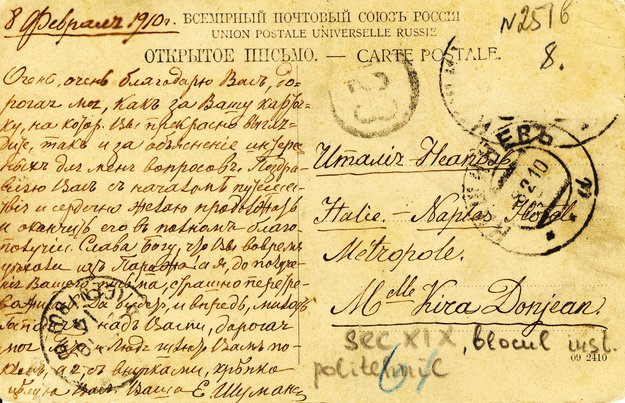 8 Февраля 1910 г.
ВСЕМІРНЫЙ ПОЧТОВЫЙ СОЮЗЪ РОССІЯ
UNION POSTALE UNIVERSELLE RUSSIE
ОТКРЫТОЕ ПИСЬМО. — CARTE POSTALE.
N 2516
8.
Очень, очень благодарю Васъ, до-
рогая моя, какъ за Вашу карточ-
ку, на котор. Вы прекрасно выгля-
дите, такъ и за объясненіе интерес-
ныхъ для меня вопросовъ. Поздра-
вляю Васъ съ началомъ путешест-
вія и сердечно желаю продолжать
и окончить его въ полномъ благо-
получіи. Слава Богу, что Вы вовремя
уѣхали изъ Парижа! а я, до
Вашего письма, страшно
и впредь, милость
надъ Вами, дорогая
моя
а я, съ внучками, крѣпко
цѣлую Васъ. Ваша Е. Шуман
23
КІЕВЪ
2 10
Италія Неаполь
Italie. - Naples Hotel
Métropole.
Melle Kira Donjean.
sec XIX, blocul inst.
politehnic
61
09 2410